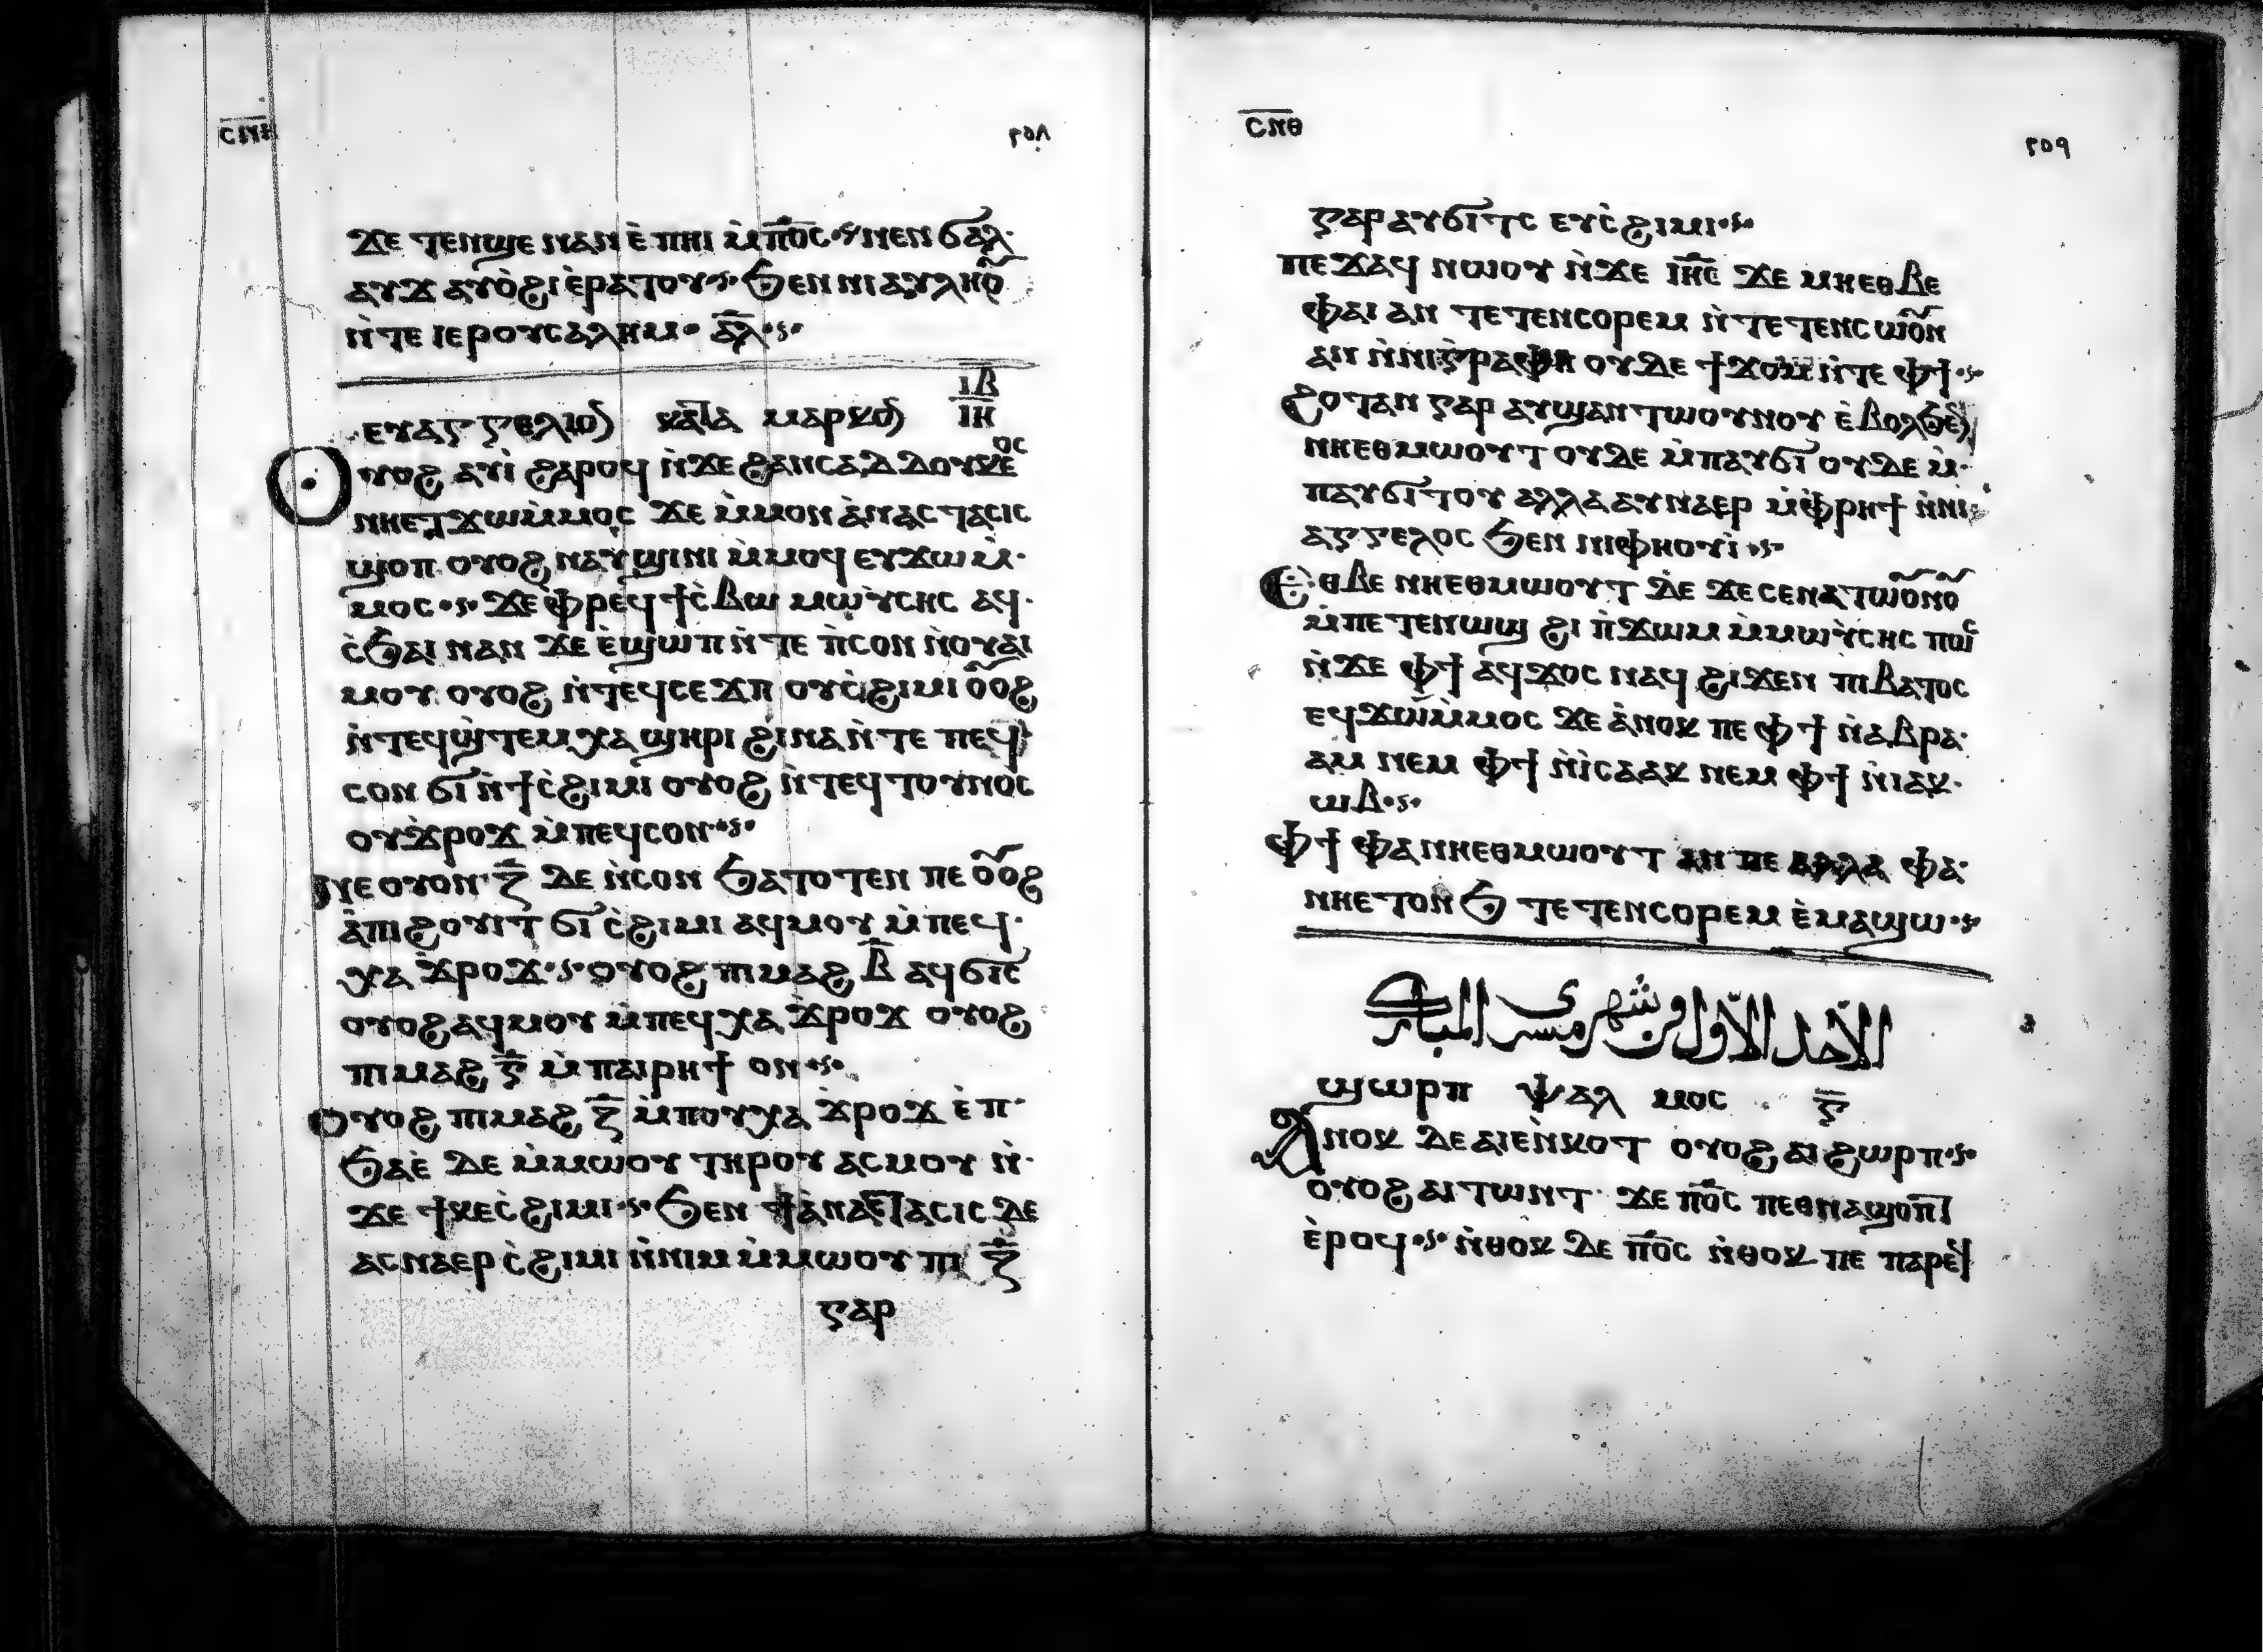 ⲥⲛⲏ ٢٥٨
ϫⲉ ⲧⲉⲛϣⲉ ⲛⲁⲛ ⲉ̀ ⲡⲏⲓ ⲙ̀ⲡ̅ⲟ̅ⲥ̅ ⲛⲉⲛ ϭⲁⲗ
ⲁⲩϫ ⲁⲩⲟ̀ϩⲓ ⲉ̀ⲣⲁⲧⲟⲩ ϧⲉⲛ ⲛⲓⲁⲩⲗⲏⲟ̃
ⲛ̀ⲧⲉ ⲓⲉⲣⲟⲩⲥⲁⲗⲏⲙ ⲁ̅ⲗ̅
ⲓ̅ⲃ̅
ⲉⲩⲁⲅⲅⲉⲗⲓⲟⲛ ⲕⲁⲧⲁ ⲙⲁⲣⲕⲟⲛ ⲓ̅ⲏ̅
ⲟⲩⲟϩ ⲁⲩⲓ̀ ϩⲁⲣⲟϥ ⲛ̀ϫⲉ ϩⲁⲛⲥⲁⲇⲇⲟⲩⲕⲉⲟⲥ
ⲛⲏⲉⲧϫⲱⲙ̀ⲙⲟⲥ ϫⲉ ⲙ̀ⲙⲟⲛ ⲁ̀ⲛⲁⲥⲧⲁⲥⲓⲥ
ϣⲟⲡ ⲟⲩⲟϩ ⲛⲁⲩϣⲓⲛⲓ ⲙ̀ⲙⲟϥ ⲉⲩϫⲱ ⲙ̀
ⲙⲟⲥ ϫⲉ ⲫⲣⲉϥϯⲥ̀ⲃⲱ ⲙⲱⲩ̀ⲥⲏⲥ ⲁϥ
ⲥ̀ϧⲁⲓ ⲛⲁⲛ ϫⲉ ⲉ̀ϣⲱⲡ ⲛ̀ⲧⲉ ⲡ̀ⲥⲟⲛ ⲛ̀ⲟⲩⲁⲓ
ⲙⲟⲩ ⲟⲩⲟϩ ⲛ̀ⲧⲉϥⲥⲉϫⲡ ⲟⲩⲥ̀ϩⲓⲙⲓ ⲟ̃ⲟϩ
ⲛ̀ⲧⲉϥϣ̀ⲧⲉⲙⲭⲁ ϣⲏⲣⲓ ϩⲓⲛⲁ ⲛ̀ⲧⲉ ⲡⲉϥ
ⲥⲟⲛ ϭⲓ ⲛ̀ϯⲥ̀ϩⲓⲙⲓ ⲟⲩⲟϩ ⲛ̀ⲧⲉϥⲧⲟⲩⲛⲟⲥ
ⲟⲩϫ̀ⲣⲟϫ ⲙ̀ⲡⲉϥⲥⲟⲛ
ⲛⲉⲟⲩⲟⲛ ⲍ̅ ⲇⲉ ⲛ̀ⲥⲟⲛ ϧⲁⲧⲟⲧⲉⲛ ⲡⲉ ⲟ̃ⲟϩ
ⲁ̀ⲡⲓϩⲟⲩⲓⲧ ϭⲓ ⲥ̀ϩⲓⲙⲓ ⲁϥⲙⲟⲩ ⲙ̀ⲡⲉϥ
ⲭⲁ ϫ̀ⲣⲟϫ ⲟⲩⲟϩ ⲡⲓⲙⲁϩ ⲃ̅ ⲁϥϭⲓⲥ
ⲟⲩⲟϩ ⲁϥⲙⲟⲩ ⲙ̀ⲡⲉϥⲭⲁ ϫ̀ⲣⲟϫ ⲟⲩⲟϩ
ⲡⲓⲙⲁϩ ⲅ̅ ⲙ̀ⲡⲁⲓⲣⲏϯ ⲟⲛ
ⲟⲩⲟϩ ⲡⲓⲙⲁϩ ⲍ̅ ⲙ̀ⲡⲟⲩⲭⲁ ϫ̀ⲣⲟϫ ⲉ̀ⲡ
ϧⲁⲉ̀ ⲇⲉ ⲙ̀ⲙⲱⲟⲩ ⲧⲏⲣⲟⲩ ⲁⲥⲙⲟⲩ ⲛ̀
ϫⲉ ϯⲕⲉⲥ̀ϩⲓⲙⲓ ϧⲉⲛ ϯⲁ̀ⲛⲁⲥⲧⲁⲥⲓⲥ ⲇⲉ
ⲁⲥⲛⲁⲉⲣ ⲥ̀ϩⲓⲙⲓ ⲛ̀ⲛⲓⲙ ⲙ̀ⲙⲱⲟⲩ ⲡⲓ ⲍ̅
ⲅⲁⲣ
ⲥⲛⲑ ٢٥٩
ⲅⲁⲣ ⲁⲩϭⲓⲧⲥ ⲉⲩⲥ̀ϩⲓⲙⲓ
ⲡⲉϫⲁϥ ⲛⲱⲟⲩ ⲛ̀ϫⲉ ⲓ̅ⲏ̅ⲥ̅ ϫⲉ ⲙⲏ ⲉⲑⲃⲉ
ⲫⲁⲓ ⲁⲛ ⲧⲉⲧⲉⲛⲥⲟⲣⲉⲙ ⲛ̀ⲧⲉⲧⲉⲛⲥⲱⲟ̃ⲛ
ⲁⲛ ⲛ̀ⲛⲓⲅⲣⲁⲫⲏ ⲟⲩⲇⲉ ϯϫⲟⲙ ⲛ̀ⲧⲉ ⲫϯ
ϩⲟⲧⲁⲛ ⲅⲁⲣ ⲁⲩϣⲁⲛⲧⲱⲟⲩⲛⲟⲩ ⲉ̀ⲃⲟⲗϧⲉⲛ
ⲛⲏⲉⲑⲙⲱⲟⲩⲧ ⲟⲩⲇⲉ ⲙ̀ⲡⲁⲩϭⲓ ⲟⲩⲇⲉ ⲙ̀
ⲡⲁⲩϭⲓⲧⲟⲩ ⲁⲗⲗⲁ ⲁⲩⲛⲁⲉⲣ ⲙ̀ⲫⲣⲏϯ ⲛ̀ⲛⲓ
ⲁⲅⲅⲉⲗⲟⲥ ϧⲉⲛ ⲛⲓⲫⲏⲟⲩⲓ̀
ⲉⲑⲃⲉ ⲛⲏⲉⲑⲙⲱⲟⲩⲧ ⲇⲉ ϫⲉ ⲥⲉⲛⲁⲧⲱⲟ̃ⲛⲟ̃
ⲙ̀ⲡⲉⲧⲉⲛⲱϣ ϩⲓ ⲡ̀ϫⲱⲙ ⲙ̀ⲙⲱⲩ̀ⲥⲏⲥ ⲡⲱⲥ
ⲛ̀ϫⲉ ⲫϯ ⲁϥϫⲟⲥ ⲛⲁϥ ϩⲓϫⲉⲛ ⲡⲓⲃⲁⲧⲟⲥ
ⲉϥϫⲱⲙ̀ⲙⲟⲥ ϫⲉ ⲁ̀ⲛⲟⲕ ⲡⲉ ⲫϯ ⲛ̀ⲁⲃⲣⲁ
ⲁⲙ ⲛⲉⲙ ⲫϯ ⲛ̀ⲓ̀ⲥⲁⲁⲕ ⲛⲉⲙ ⲫϯ ⲛ̀ⲓⲁⲕ
ⲱⲃ
ⲫϯ ⲫⲁ ⲛⲏⲉⲑⲙⲱⲟⲩⲧ ⲁⲛ ⲡⲉ ⲁⲗⲗⲁ ⲫⲁ
ⲛⲏⲉⲧⲟⲛϧ ⲧⲉⲧⲉⲛⲥⲟⲣⲉⲙ ⲉ̀ⲙⲁϣⲱ
الاحد الاول من شهر مسرى المبارك
ϣⲱⲣⲡ ⲯⲁⲗ ⲙⲟⲥ ⲅ̅
ⲁⲛⲟⲕ ⲇⲉ ⲁⲓⲉⲛ̀ⲕⲟⲧ ⲟⲩⲟϩ ⲁⲓϩⲱⲣⲡ
ⲟⲩⲟϩ ⲁⲓⲧⲱⲛⲧ ϫⲉ ⲡ̅ⲟ̅ⲥ̅ ⲡⲉⲑⲛⲁϣⲟⲡⲧ
ⲉ̀ⲣⲟϥ ⲛ̀ⲑⲟⲕ ⲇⲉ ⲡ̅ⲟ̅ⲥ̅ ⲛ̀ⲑⲟⲕ ⲡⲉ ⲡⲁⲣⲉϥ